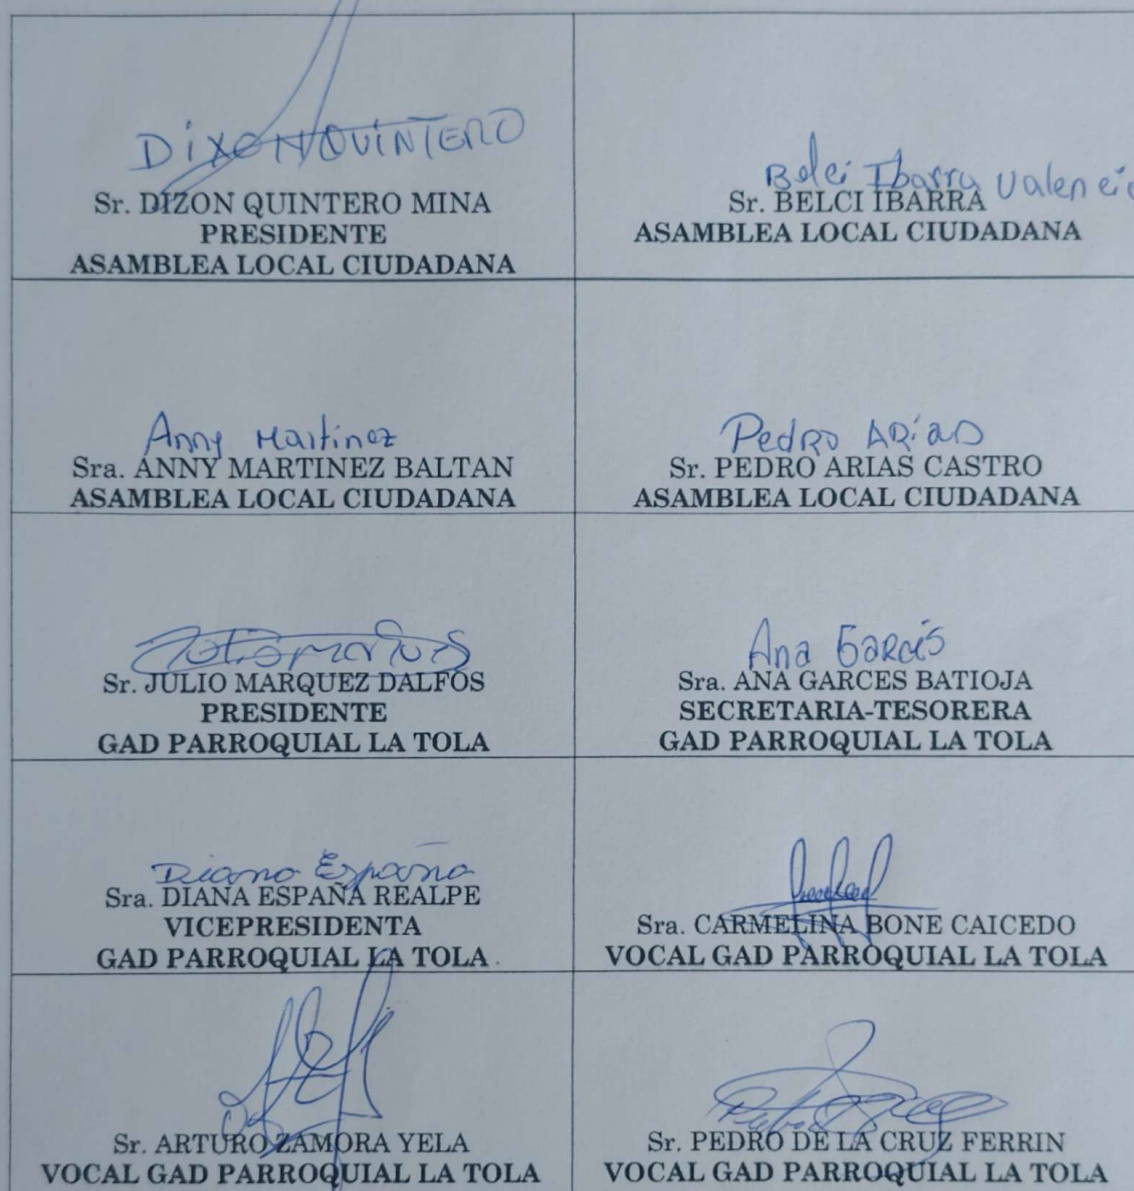 DiXON QUINTERO
Sr. DIZON QUINTERO MINA
PRESIDENTE
ASAMBLEA LOCAL CIUDADANA
Belci Ibarra Valencia
Sr. BELCI IBARRA
ASAMBLEA LOCAL CIUDADANA
Anny Martinez
Sra. ANNY MARTINEZ BALTAN
ASAMBLEA LOCAL CIUDADANA
Pedro Arias
Sr. PEDRO ARIAS CASTRO
ASAMBLEA LOCAL CIUDADANA
Sr. JULIO MARQUEZ DALFOS
PRESIDENTE
GAD PARROQUIAL LA TOLA
Ana Garcés
Sra. ANA GARCES BATIOJA
SECRETARIA-TESORERA
GAD PARROQUIAL LA TOLA
Diana España
Sra. DIANA ESPAÑA REALPE
VICEPRESIDENTA
GAD PARROQUIAL LA TOLA
Sra. CARMELINA BONE CAICEDO
VOCAL GAD PARROQUIAL LA TOLA
Sr. ARTURO ZAMORA YELA
VOCAL GAD PARROQUIAL LA TOLA
Sr. PEDRO DE LA CRUZ FERRIN
VOCAL GAD PARROQUIAL LA TOLA